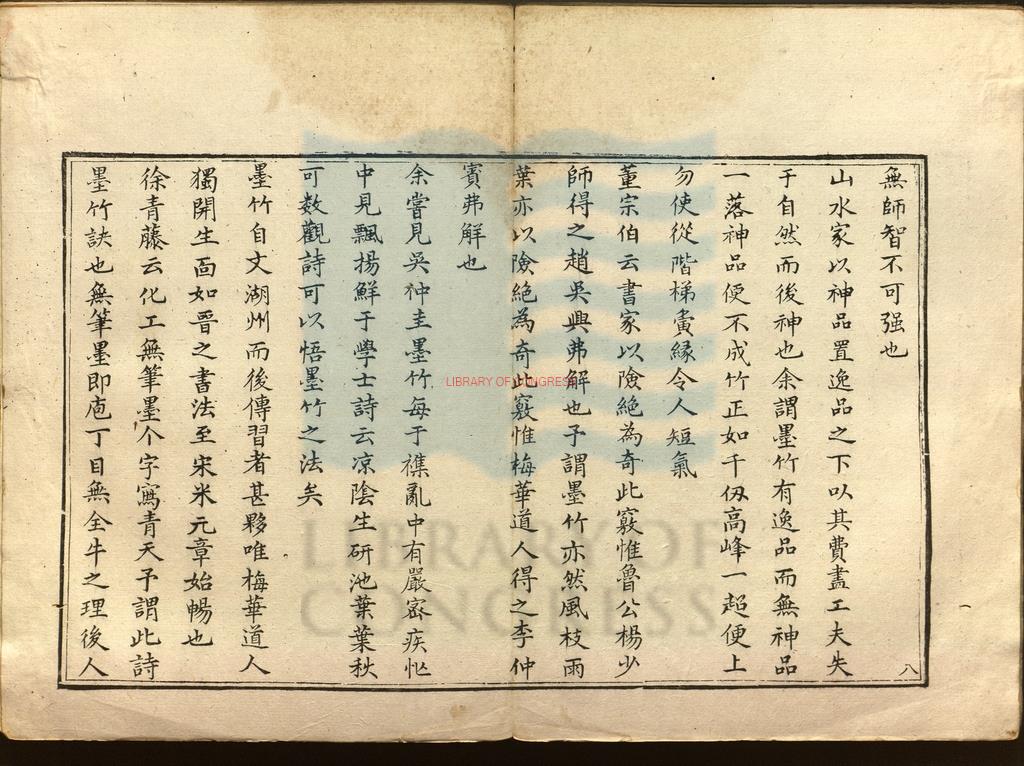 無師智不可强也
山水家以神品置逸品之下以其費盡工夫失
于自然而後神也余謂墨竹有逸品而無神品
一落神品便不成竹正如千仭高峰一超便上
勿使從階梯夤緣令人短氣
董宗伯云書家以險絕為奇此竅惟魯公楊少
師得之趙吳興弗解也予謂墨竹亦然風枝雨
葉亦以險絕為奇此竅惟梅華道人得之李仲
賓弗解也
余嘗見吳仲圭墨竹每于襍亂中有嚴密疾忙
中見飄揚鮮于學士詩云凉陰生研池葉葉秋
可数觀詩可以悟墨竹之法矣
墨竹自文湖州而後傳習者甚夥唯梅華道人
獨開生面如晋之書法至宋米元章始暢也
徐青藤云化工無筆墨个字寫青天予謂此詩
墨竹訣也無筆墨即庖丁目無全牛之理後人
八
LIBRARY OF CONGRESS
LIBRARY OF
CONGRESS